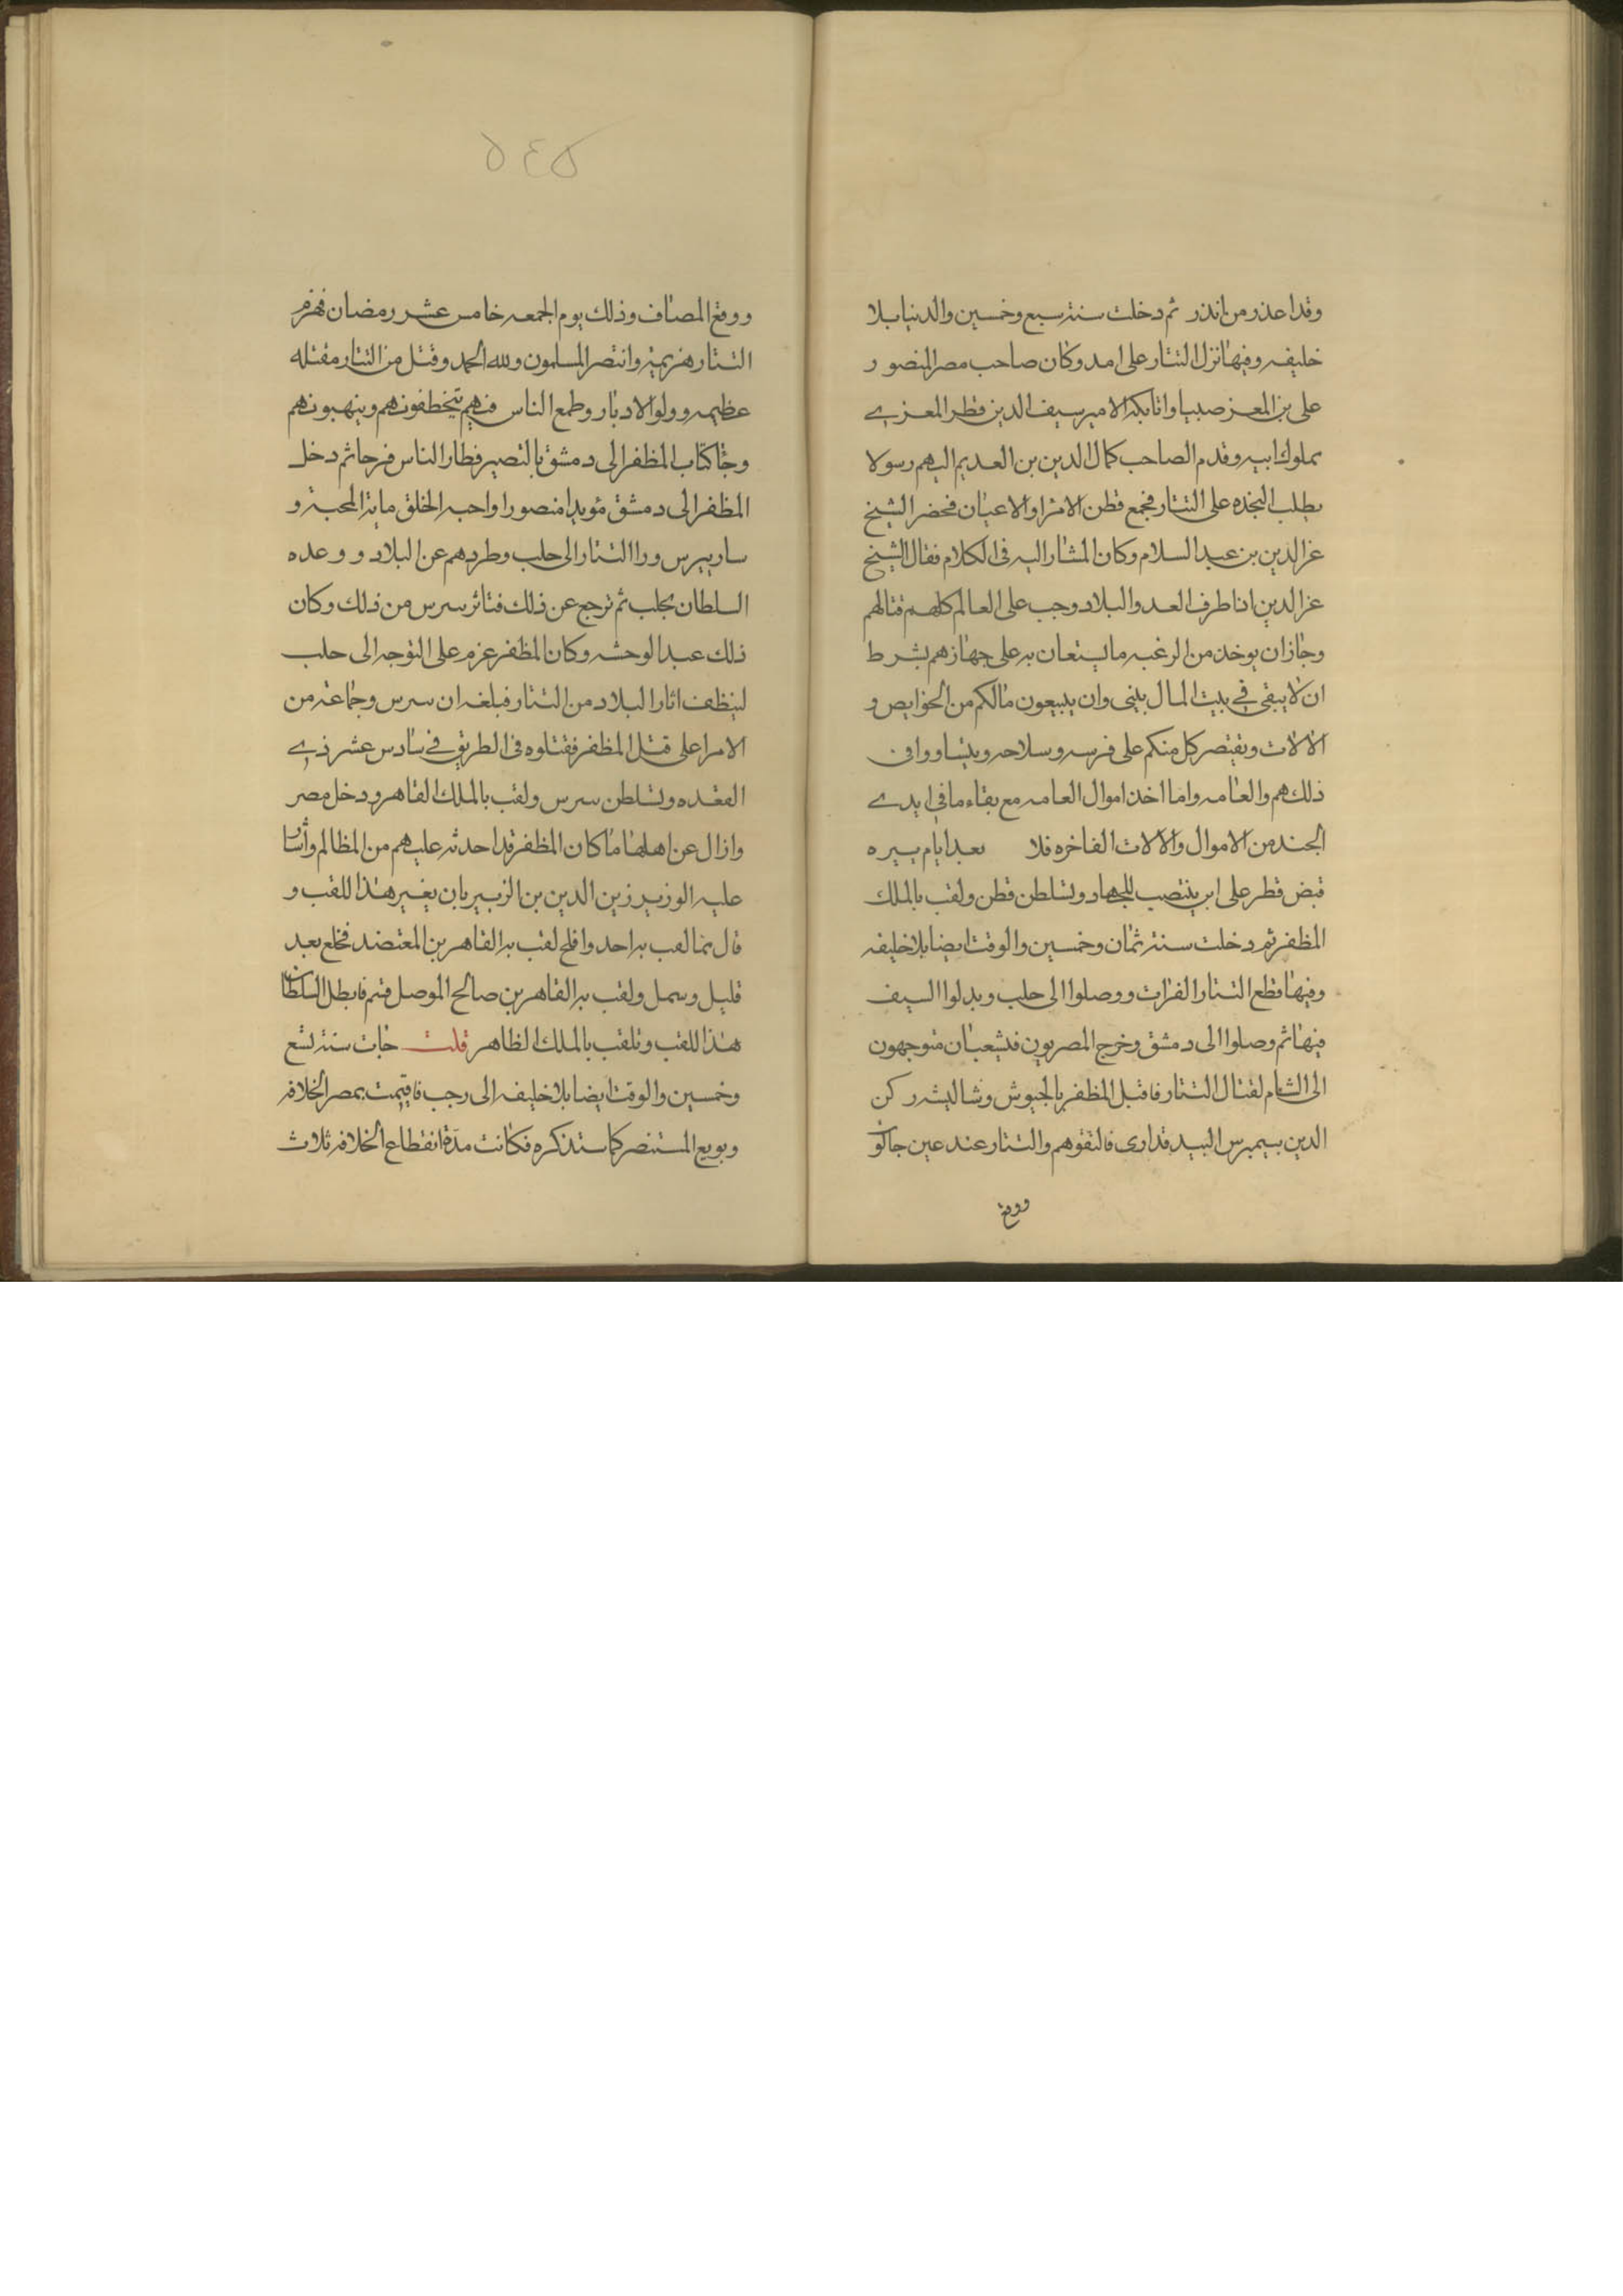 وقد اعذر من انذر ثم دخلت سنة سبع وخمسين والدنيا بلا
خليفه وفيها نزل التتار على امد وكان صاحب مصر المنصور
على بن المعز صبيا واتابكه الامير سيف الدين قطز المعزي
مملوك ابيه وقدم الصاحب كمال الدين بن العديم اليهم رسولا
يطلب النجده على التتار فجمع قطن الامرا والاعيان فحضر الشيخ
عز الدين بن عبد السلام وكان المشار اليه في الكلام فقال الشيخ
عز الدين اذا طرف العدو البلاد وجب على العالم كلهم قتالهم
وجاز ان يوخذ من الرغبه ما يستعان به على جهازهم بشرط
ان لا يبقى في بيت المال شي وان يبيعون مالكم من الحوايص و
الالات ويقتصر كل منكم على فرسه وسلاحه
ذلك هم والعامه واما اخذ اموال العامه مع بقاء ما في ايدي
الجند من الاموال والالات الفاخره فلا بعد ايام يسيره
قبض قطر على ابن ينتصب للجهاد وتسلطن قطن ولقب بالملك
المظفر ثم دخلت سنة ثمان وخمسين والوقت ايضا بلا خليفه
وفيها قطع التتار الفرات ووصلوا الى حلب وبدلوا السيف
فيها ثم وصلوا الى دمشق وخرج المصريون في شعبان متوجهون
الى الشام لقتال التتار فاقبل المظفر بالجيوش وشاليشه ركن
الدين بيبرس البيدقدارى فالتقوهم والتتار عند عين جالو
ووقع
٥٤٥
ووقع المصاف وذلك يوم الجمعه خامس عشر رمضان فهزم
التتار هزيمة وانتصر المسلمون ولله الحمد وقتل من التتار مقتله
عظيمه وولوا الادبار وطمع الناس فيهم يتخطفونهم وينهبونهم
وجا كتاب المظفر الى دمشق بالنصر فطار الناس فرحا ثم دخل
المظفر الى دمشق مؤيدا منصورا واحبه الخلق ماية المحبة و
سار بيبرس ورا التتار الى حلب وطردهم عن البلاد ووعده
السلطان بحلب ثم ترجع عن ذلك فتاثر بيبرس من ذلك وكان
ذلك عبد الوحشه وكان المظفر عزم على التوجه الى حلب
لينظف اثار البلاد من التتار فبلغه ان بيبرس وجماعة من
الامرا على قتل المظفر فقتلوه في الطريق في سادس عشر ذي
القعده وتسلطن بيبرس ولقب بالملك القاهر ودخل مصر
وازال عن اهلها ما كان المظفر قد احدثه عليهم من المظالم واشار
عليه الوزير زين الدين بن الزبير بان يغير هذا اللقب و
قال ما لقب به احد وافلح لقب به القاهر بن المعتضد فخلع بعد
قليل وسمل ولقب به القاهر بن صالح الموصل فتم فابطل السلطان
هذا اللقب وتلقب بالملك الظاهر قلت جات سنة تسع
وخمسين والوقت ايضا بلا خليفه الى رجب فاقيمت بمصر الخلافه
وبويع المستنصر كما ستذكره فكانت مدة انقطاع الخلافه ثلاث